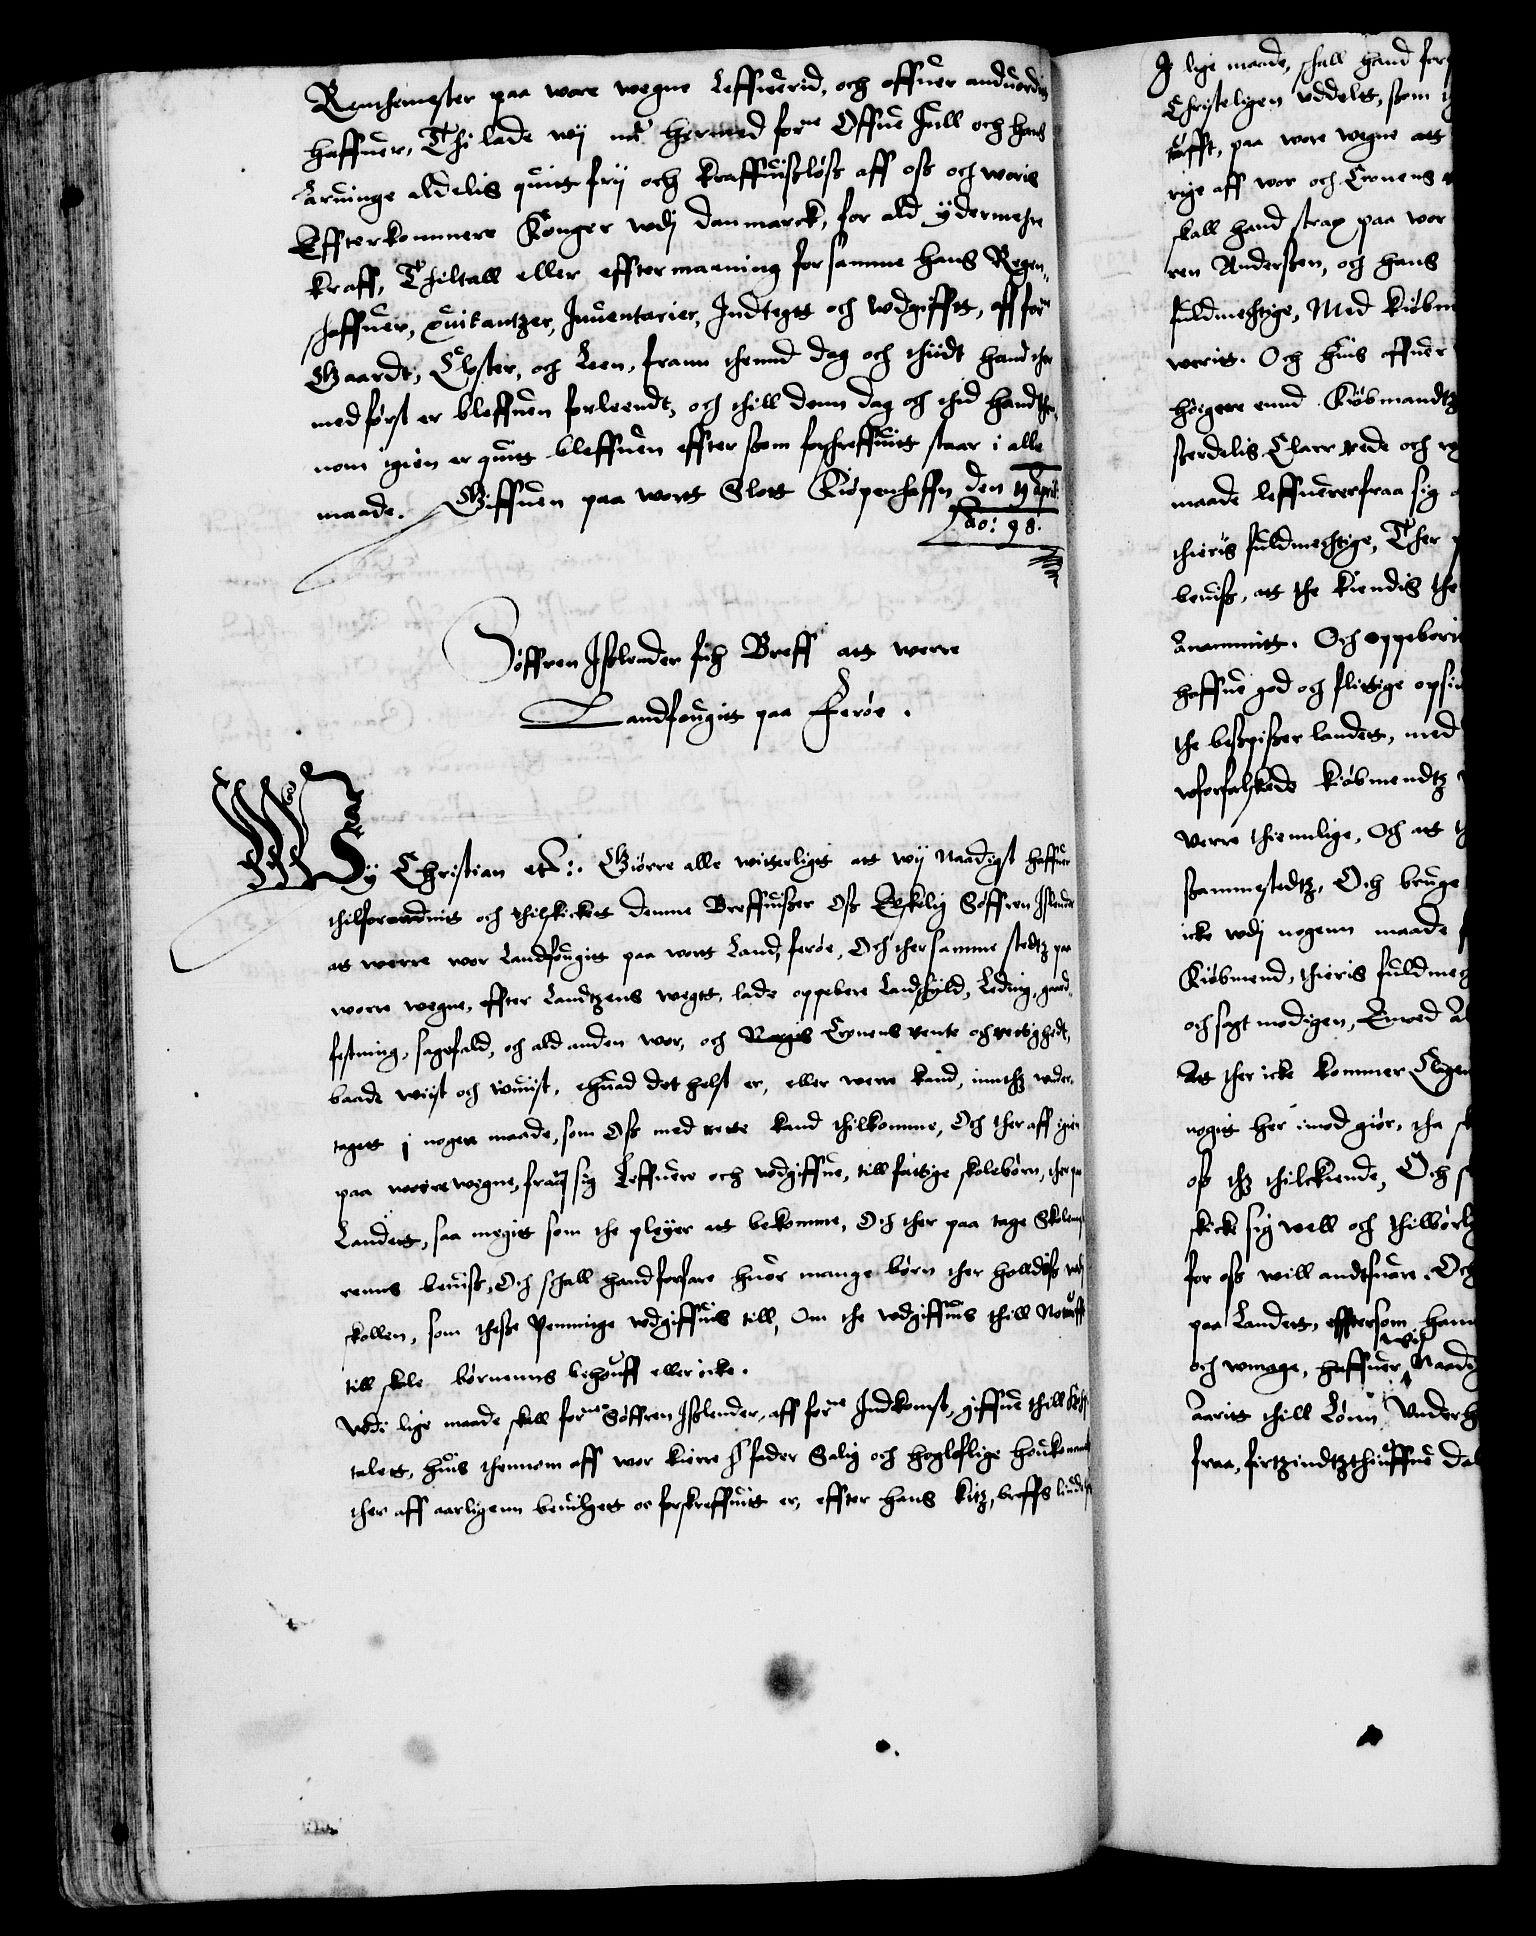 Renthemester paa wore wegne Leffuerid, och offuer anduordit
haffuer, Thi lade wij nu hermed forne Offue Jull och hans
Aruinge aldelis quitt frij och kraffuißløß aff oß och woris
Effterkommere Konger wdj Danmarck, for ald ydermehre
kraff, Thiltall eller efftermaaning for samme hans Regen-
schaffuer, quitantzer, Inuentarier, Indtegtt och wdgifftt, aff forne
Gaardt, Closter, och Leen, frann thennd dag och thiidt hand ther
med først er bleffuen forleendt, och thill denn dag och thid hand ther-
nom igien er quitt bleffuen effter som forschreffuitt staar i alle
maade. Giffuen paa wortt Slott Kiøpenhaffn den 19 April
Ao: 98.
Søffren Ißlender fich Breff att werre
Landfougitt paa Ferøe.
Wij Christian etc: Giørre alle witterligtt att wij Naadigst haffuer
thilforordnit och thilskickett denne Breffuißer Oß Elskelig Søffren Islender
att werre wor Landfougitt paa wortt Land, ferøe, Och ther samme stedtz paa
worre wegne, effter Landtzens wegtt, lade oppebere Landskyld, Leding, gaard-
festning, sagefald, och ald anden wor, och Cronens rente och rettighedt,
baade wist och wuist, ehuad det helst er, eller werre kand, inntthz wder-
tagett j nogen maade, som Oß med rette kand thilkomme, Och ther aff igien
paa worre wegne, fraa sig Leffuere och wdgiffue, till fattige skolebørn, ther paa
Landett, saa megitt som the pleyer att bekomme, Och ther paa tage Skolem
renns beuiß, Och schall hand forfare huor mange børn ther holldiß wdj
skollen, som theße Penninge wdgiffuis till, Om the wdgiffuis thill Notturfft
till skole børnenns behouff eller icke.
Wdi lige maade skall forne Søffren Ißlender, aff forne Indkomst, giffue thill
talett, huis thennom aff wor kierre H fader Salig och høgloflige houkommelse
ther aff aarligenn beuilgett oc forskreffuitt er, effter hans
J lige maade, schall hand
Christeligen uddelt, som
tufft, paa wore wegne att
rige aff wor och Cronens
skall hand strax paa wor
ren Anderßen, och hans
fuldmechtige, Med kiøbm
weritt. Och huis offuer
høigere ennd Kiøbmandtz
sterdelis Clar rede och
maade leffuerer fraa sig
thieris fuldmechtige, Ther
beuiß, att the kiendis the
Anammitt. Och oppeborit
haffue god och flittige opsi
the beßpißer landett, med
wforfalskede kiøbmendtz
verre thiennlige, Och att
sammestedtz, Och bruge
icke wdj nogenn maade
Kiøbmend, thieris fuldmec
och sagtmodigen,
Att ther icke kommer Clagen
nogitt her imod giør, tha
oß thz thilkiende, Och
skicke sig well och thilbørl
for oß will andtsuare. Och
paa Landett, efftersom hand
och wmage, haffuer wij Naadig
Aaritt thill Lønn Vnderh
fraa, firtzindtzthiuffue dal